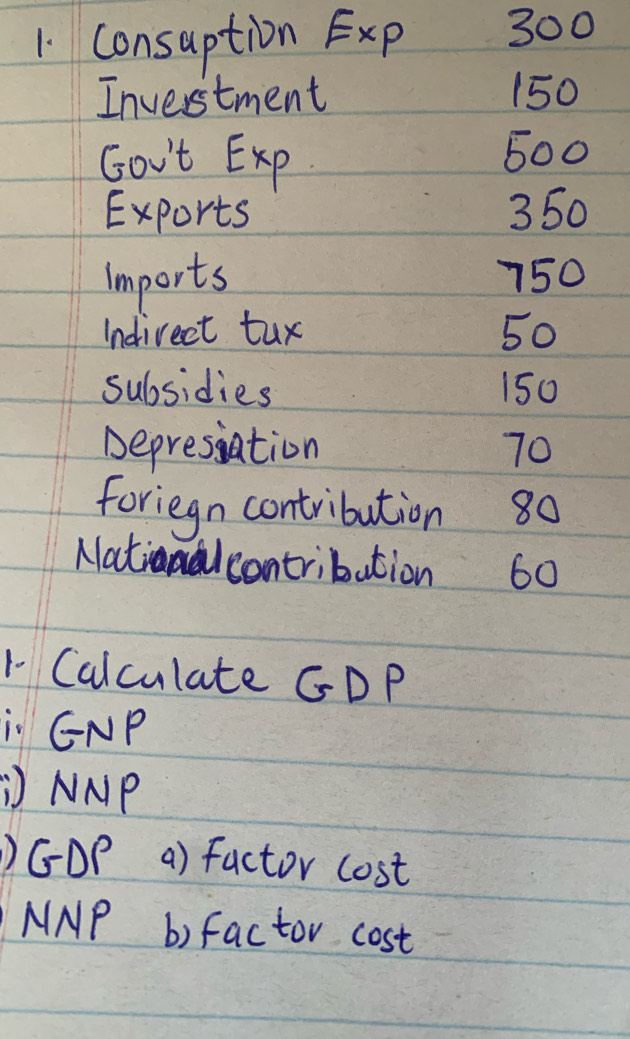 1. Consuption Exp 300
Inverstment 150
Gov't Exp. 500
Exports 350
Imports 750
Indirect tux 50
subsidies 150
Depresiation 70
foriegn contribution 80
National contribution 60
1- Calculate GDP
i. GNP
i) NNP
) GDP a) factor cost
NNP b) factor cost